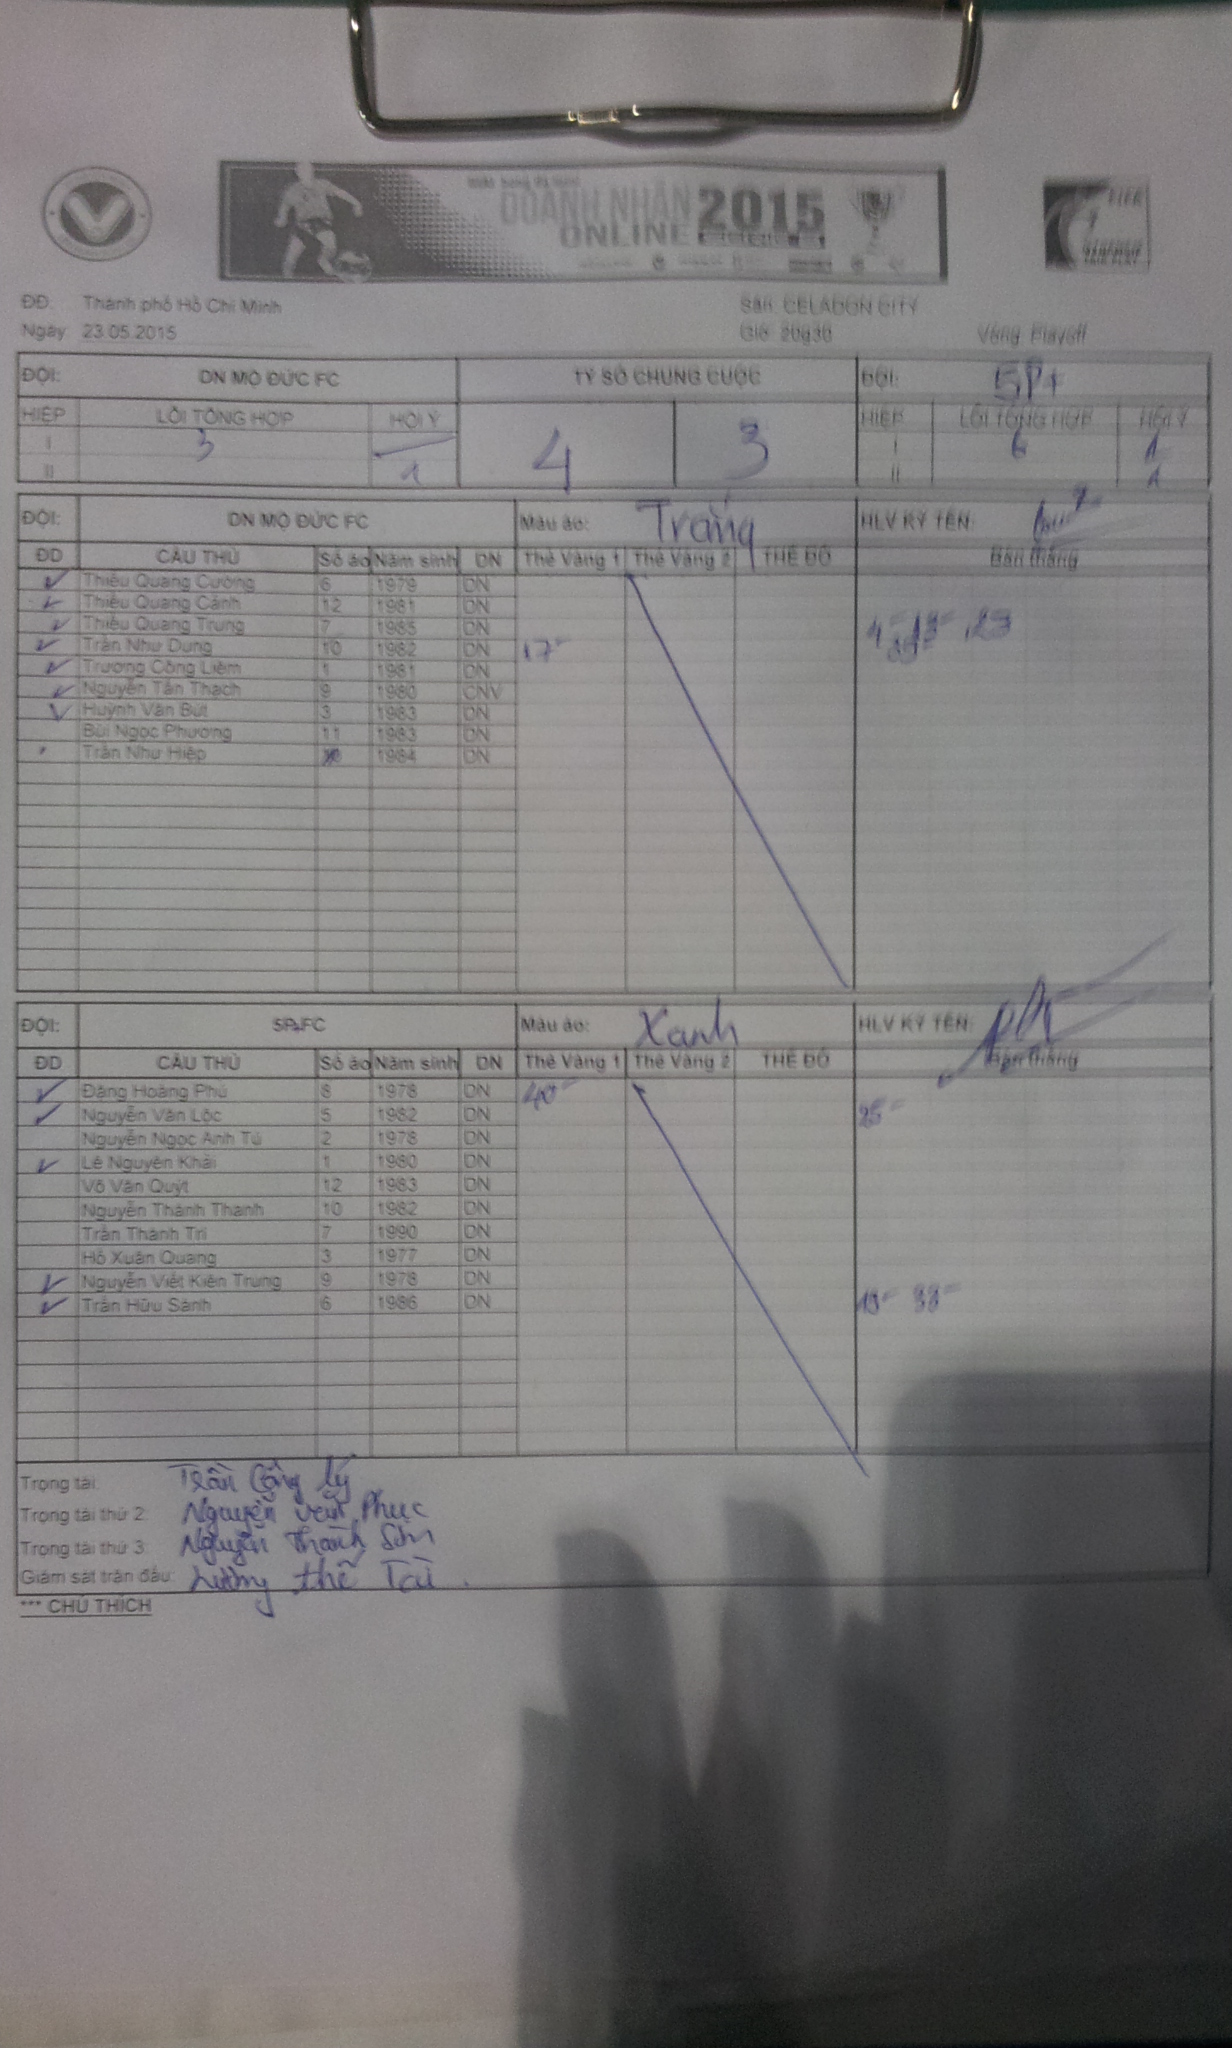 DOANH NHÂN 2015
ONLINE
ĐĐ. Thành phố Hồ Chí Minh Sân CELADON CITY
Ngày 23.05.2015 Giờ 20g30 Vòng Playoff
ĐỘI: DN MỘ ĐỨC FC TỶ SỐ CHUNG CUỘC ĐỘI: 5P+
HIỆP LỖI TỔNG HỢP HỘI Ý 4 3 HIỆP LỖI TỔNG HỢP HỘI Ý
I 3 I 6 1
II 1 II 1
ĐỘI: DN MỘ ĐỨC FC Màu áo: Trắng HLV KÝ TÊN:
ĐD CẦU THỦ Số áo Năm sinh DN Thẻ Vàng 1 Thẻ Vàng 2 THẺ ĐỎ Bàn thắng
Thiều Quang Cường 6 1979 DN
Thiều Quang Cảnh 12 1981 DN
Thiều Quang Trung 7 1985 DN
Trần Như Dung 10 1982 DN 17
Trương Công Liêm 1 1981 DN
Nguyễn Tấn Thạch 9 1980 CNV
Huỳnh Văn Bút 3 1983 DN
Bùi Ngọc Phương 11 1983 DN
Trần Như Hiệp 1984 DN
ĐỘI: 5P.FC Màu áo: Xanh HLV KÝ TÊN:
ĐD CẦU THỦ Số áo Năm sinh DN Thẻ Vàng 1 Thẻ Vàng 2 THẺ ĐỎ Bàn thắng
Đặng Hoàng Phú 8 1978 DN 40
Nguyễn Văn Lộc 5 1982 DN 25
Nguyễn Ngọc Anh Tú 2 1978 DN
Lê Nguyên Khải 1 1980 DN
Võ Văn Quýt 12 1983 DN
Nguyễn Thành Thanh 10 1982 DN
Trần Thành Trí 7 1990 DN
Hồ Xuân Quang 3 1977 DN
Nguyễn Viết Kiên Trung 9 1978 DN
Trần Hữu Sánh 6 1986 DN
Trọng tài: Trần Công Lý
Trọng tài thứ 2: Nguyễn Văn Phục
Trọng tài thứ 3: Nguyễn Thanh Sơn
Giám sát trận đấu: Lường Thế Tài.
*** CHÚ THÍCH